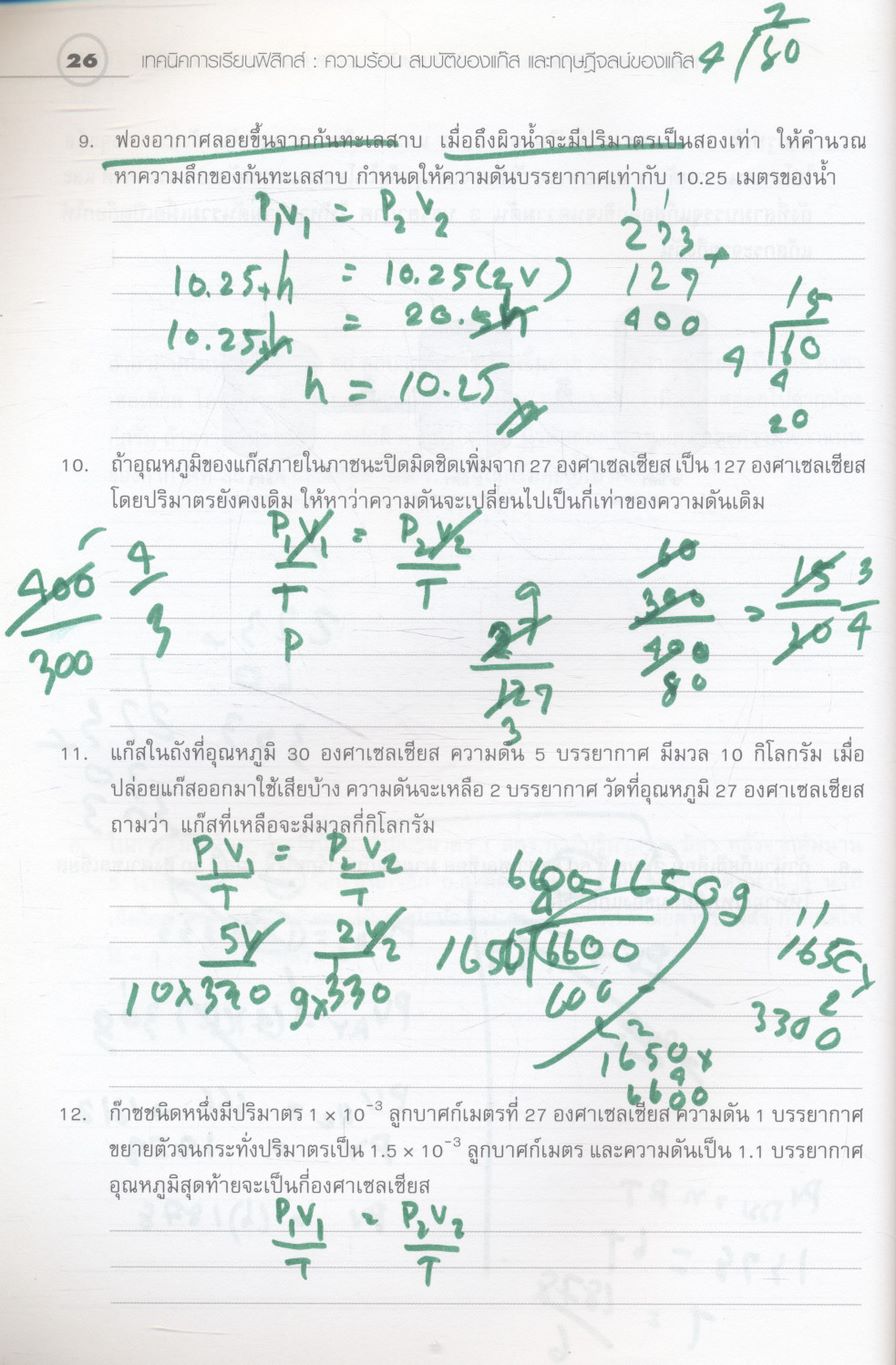 26 เทคนิคการเรียนฟิสิกส์ : ความร้อน สมบัติของแก๊ส และทฤษฎีจลน์ของแก๊ส
2
4 80
9. ฟองอากาศลอยขึ้นจากก้นทะเลสาบ เมื่อถึงผิวน้ำจะมีปริมาตรเป็นสองเท่า ให้คำนวณ
หาความลึกของก้นทะเลสาบ กำหนดให้ความดันบรรยากาศเท่ากับ 10.25 เมตรของน้ำ
P₁V₁ = P₂V₂
10.25+h = 10.25(2V)
10.25+h = 20.5h
h = 10.25
1 1
273
127 +
400
15
4 60
4
20
10. ถ้าอุณหภูมิของแก๊สภายในภาชนะปิดมิดชิดเพิ่มจาก 27 องศาเซลเซียส เป็น 127 องศาเซลเซียส
โดยปริมาตรยังคงเดิม ให้หาว่าความดันจะเปลี่ยนไปเป็นกี่เท่าของความดันเดิม
P₁V₁ = P₂V₂
T T
P
400 4
300 3
9
27
127
3
60
300 = 15 3
400 20 4
80
11. แก๊สในถังที่อุณหภูมิ 30 องศาเซลเซียส ความดัน 5 บรรยากาศ มีมวล 10 กิโลกรัม เมื่อ
ปล่อยแก๊สออกมาใช้เสียบ้าง ความดันจะเหลือ 2 บรรยากาศ วัดที่อุณหภูมิ 27 องศาเซลเซียส
ถามว่า แก๊สที่เหลือจะมีมวลกี่กิโลกรัม
P₁V₁ = P₂V₂
T T
5V 2V₂
10×330 g×330
6600=1650g
1650 6600
600
1650×
4
6600
1 1
1650
2
3300
12. ก๊าซชนิดหนึ่งมีปริมาตร 1 × 10⁻³ ลูกบาศก์เมตรที่ 27 องศาเซลเซียส ความดัน 1 บรรยากาศ
ขยายตัวจนกระทั่งปริมาตรเป็น 1.5 × 10⁻³ ลูกบาศก์เมตร และความดันเป็น 1.1 บรรยากาศ
อุณหภูมิสุดท้ายจะเป็นกี่องศาเซลเซียส
P₁V₁ = P₂V₂
T T